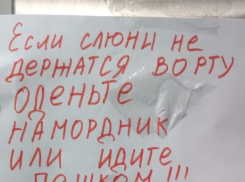 Если слюни не
держатся во рту
оденьте
намордник
или идите
пешком!!!